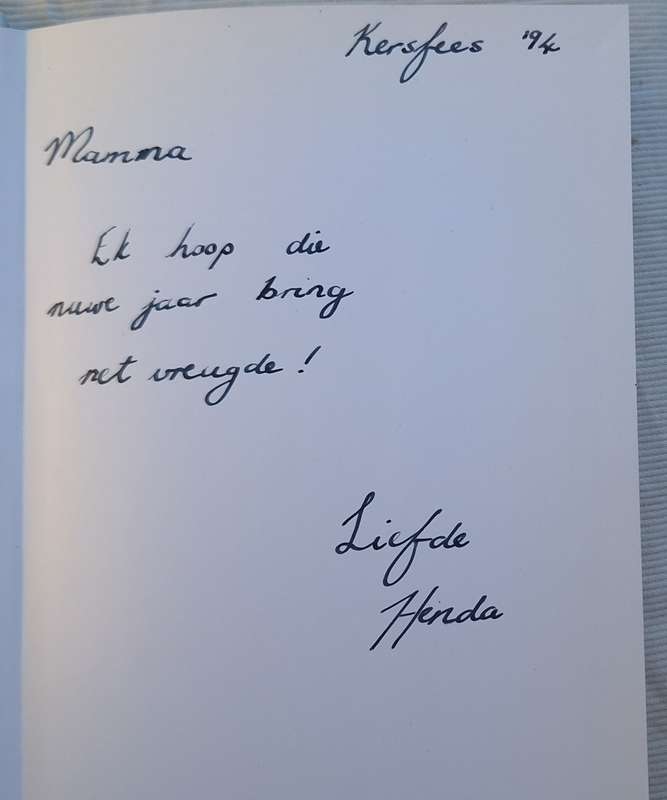 Kersfees '94
Mamma
Ek hoop die
nuwe jaar bring
net vreugde!
Liefde
Henda